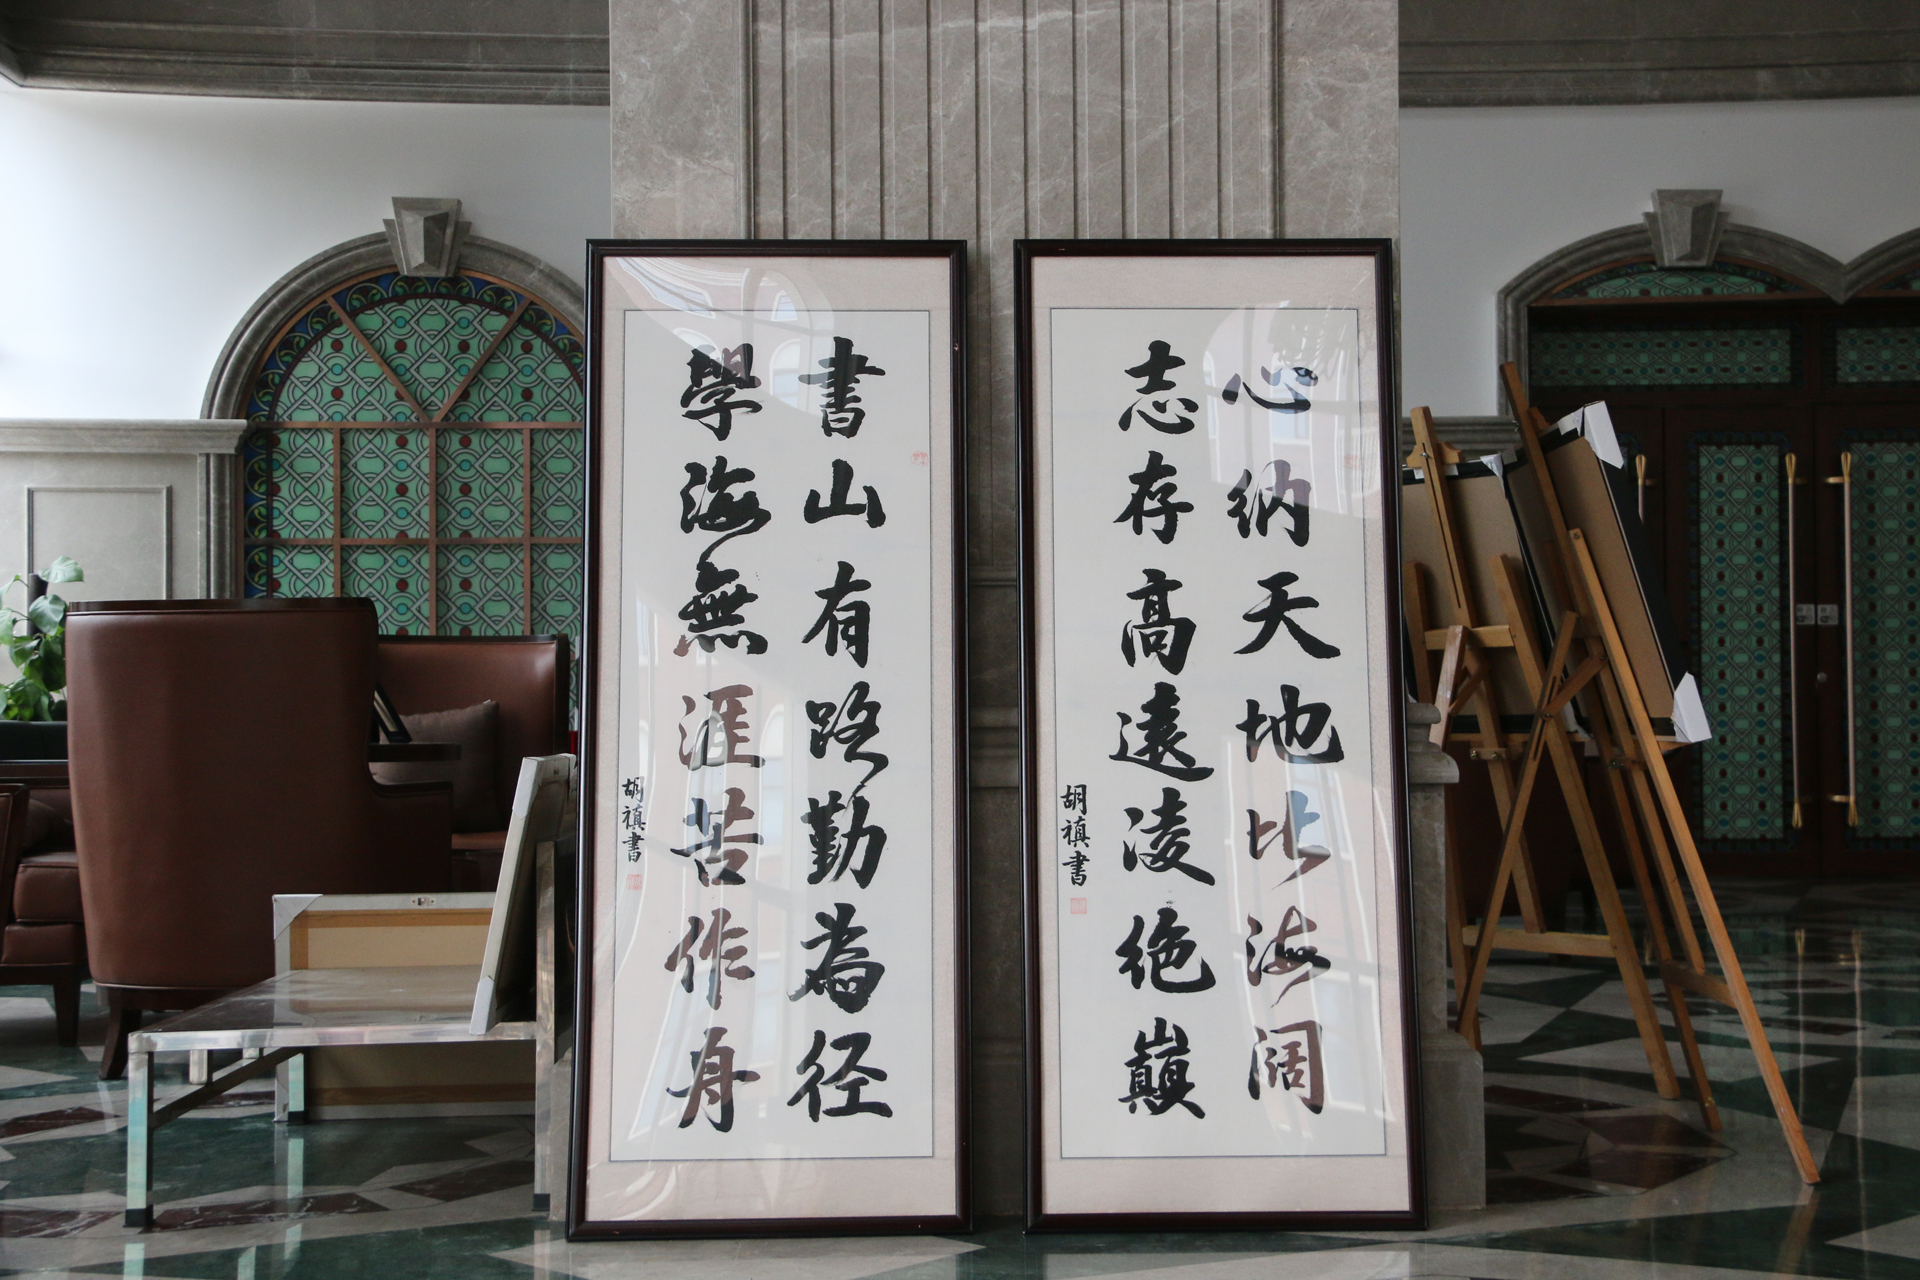 心纳天地比海阔
志存高遠凌绝巔
胡禛書
書山有路勤為径
學海無涯苦作舟
胡禛書